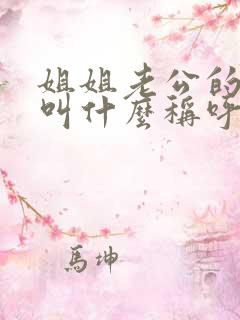 姐姐老公的
叫什麼稱呼
馬坤